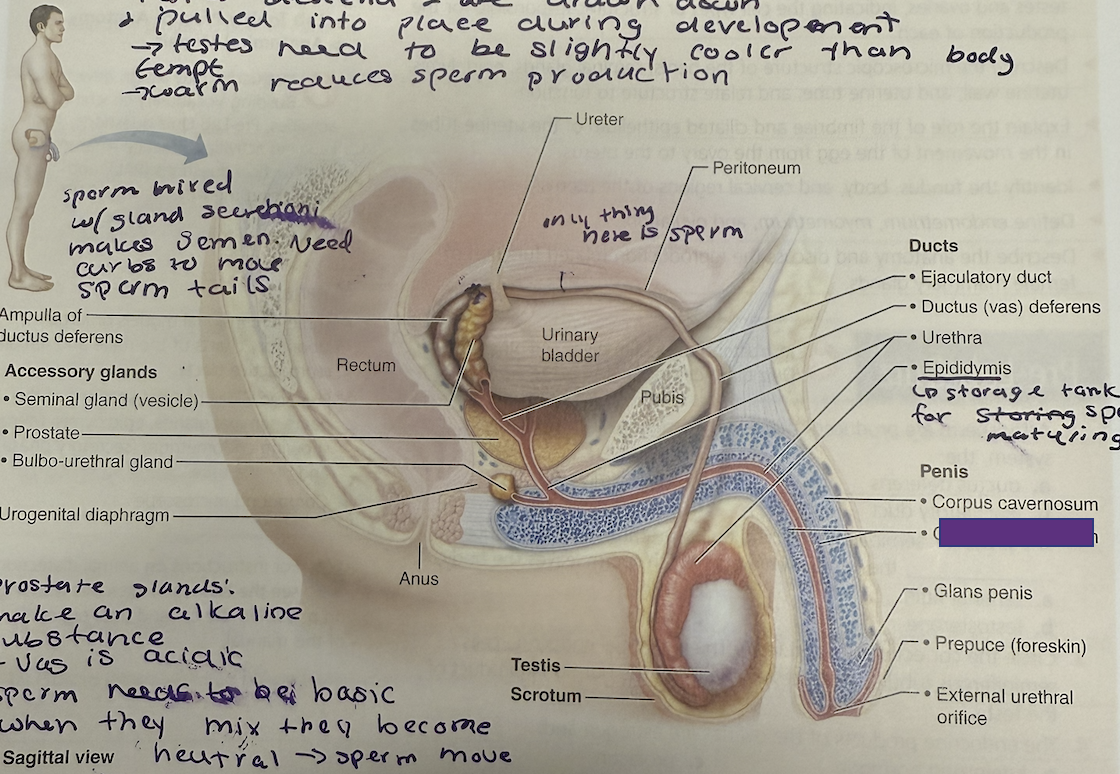 pulled into place during development
→ testes need to be slightly cooler than body
tempt
→ warm reduces sperm production
Ureter
Peritoneum
sperm mixed
w/gland
makes semen. Need
carbs to move
sperm tails
only thing
here is sperm
Ducts
• Ejaculatory duct
• Ductus (vas) deferens
• Urethra
• Epididymis
↳ storage tank
for storing
maturing
Ampulla of
ductus deferens
Accessory glands
• Seminal gland (vesicle)
• Prostate
• Bulbo-urethral gland
Urogenital diaphragm
Rectum
Urinary
bladder
Pubis
Anus
Penis
• Corpus cavernosum
• Glans penis
• Prepuce (foreskin)
• External urethral
orifice
Testis
Scrotum
rostate glands:
make an alkaline
ubstance
- vas is acidic
sperm needs to be basic
when they mix they become
neutral → sperm move
Sagittal view